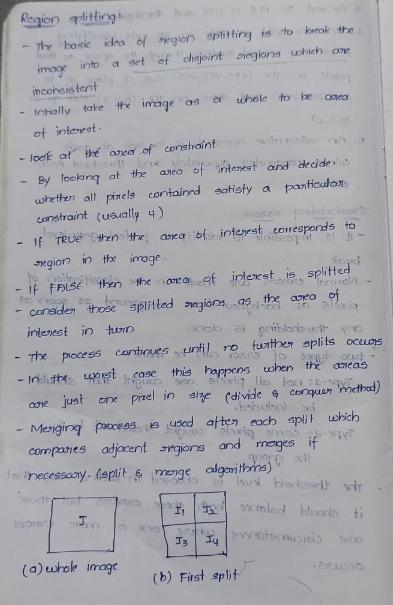 Region splitting
- The basic idea of region splitting is to break the
image into a set of disjoint regions which are
inconsistent
- Initially take the image as a whole to be area
of interest.
- look at the area of constraint
- By looking at the area of interest and decide
whether all pixels contained satisfy a particular
constraint (usually 4)
- If TRUE then the area of interest corresponds to
region in the image.
- If FALSE then the area of interest is splitted
- consider those splitted regions as the area of
interest in turn
- The process continues until no further splits occurs
- In the worst case this happens when the areas
are just one pixel in size (divide & conquer method)
- Merging process is used after each split which
compares adjacent regions and merges if
necessary. (split & merge algorithms)
I
I1 I2
I3 I4
(a) whole image
(b) First split